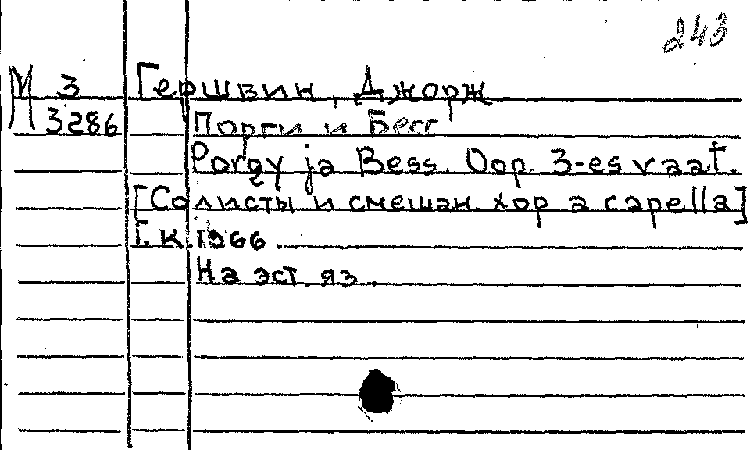 243
М 3 Гершвин, Джорж
3286 Порги и Бесс
Porgy ja Bess. Oop. 3-es vaat.
[Солисты и смешан. хор a capella]
Г.К. 1966
На эст. яз.